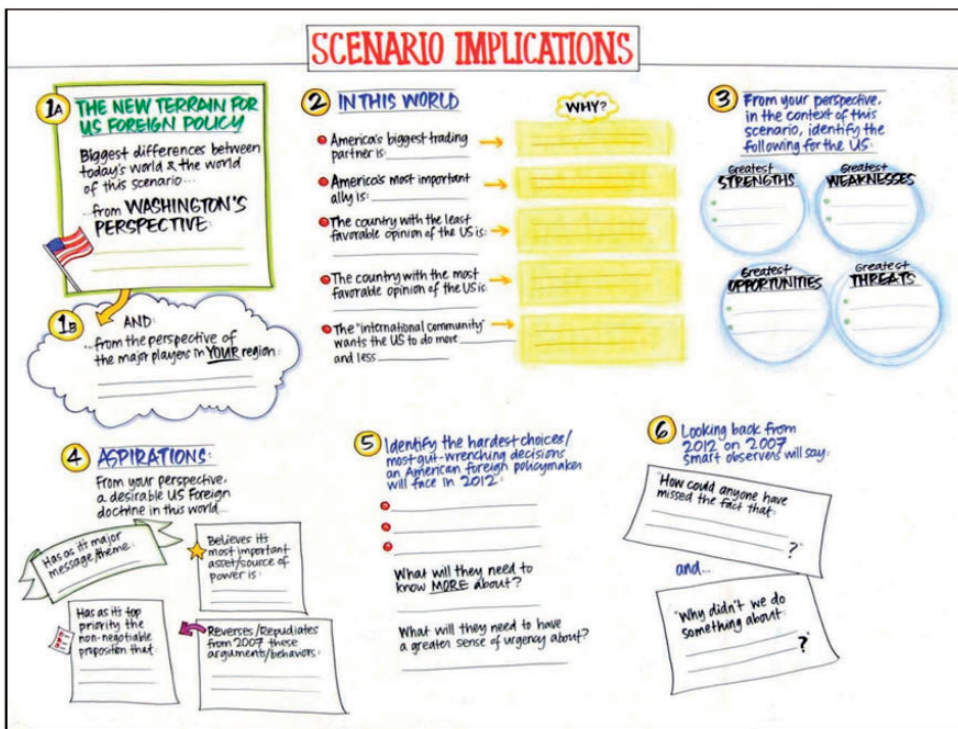 SCENARIO IMPLICATIONS
1A
THE NEW TERRAIN FOR
US FOREIGN POLICY
Biggest differences between
today's world & the world
of this scenario...
...from WASHINGTON'S
PERSPECTIVE:
1B
AND:
...from the perspective of
the major players in YOUR region:
2 IN THIS WORLD
WHY?
America's biggest trading
partner is:
America's most important
ally is:
The country with the least
favorable opinion of the US is:
The country with the most
favorable opinion of the US is:
The "international community"
wants the US to do more
and less
3 From your perspective,
in the context of this
scenario, identify the
following for the US:
Greatest
STRENGTHS
Greatest
WEAKNESSES
Greatest
OPPORTUNITIES
Greatest
THREATS
4 ASPIRATIONS:
From your perspective,
a desirable US Foreign
doctrine in this world...
Has as it's major
message/theme:
Believes it's
most important
asset/source of
power is:
Has as it's top
priority the
non-negotiable
proposition that:
Reverses/Repudiates
from 2007 these
arguments/behaviors:
5 Identify the hardest choices/
most gut-wrenching decisions
an American foreign policymaker
will face in 2012:
What will they need to
know MORE about?
What will they need to have
a greater sense of urgency about?
6 Looking back from
2012 on 2007
smart observers will say:
"How could anyone have
missed the fact that:
?"
and...
"Why didn't we do
something about:
?"